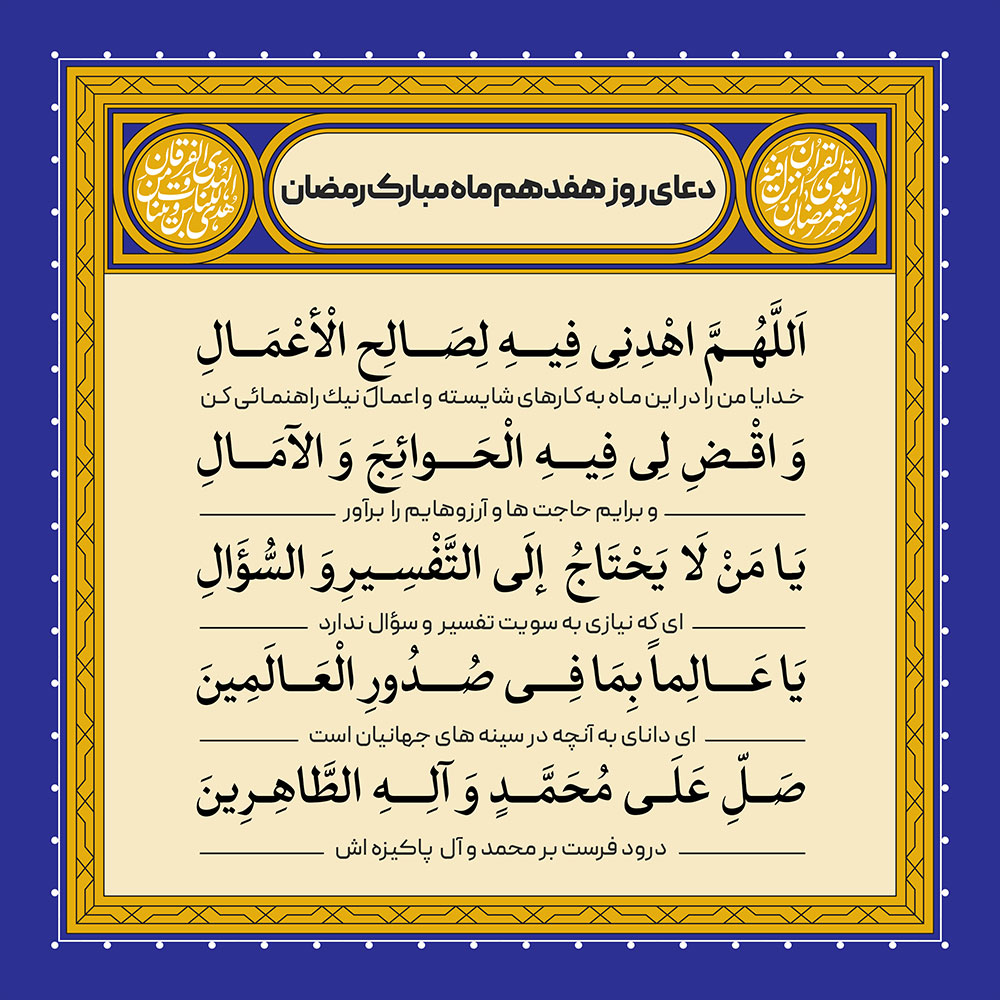 دعای روز هفدهم ماه مبارک رمضان
شهر رمضان
الذی انزل فیه
القرآن
هدی للناس
و بینات من
الهدی
و الفرقان
اَللَّهُمَّ اهْدِنِی فِیهِ لِصَالِحِ الْأَعْمَالِ
خدایا من را در این ماه به کارهای شایسته و اعمال نیك راهنمائی کن
وَ اقْضِ لِی فِیهِ الْحَوائِجَ وَ الآمَالِ
و برایم حاجت ها و آرزوهایم را برآور
یَا مَنْ لَا یَحْتَاجُ إلَی التَّفْسِیرِ وَ السُّؤَالِ
ای که نیازی به سویت تفسیر و سؤال ندارد
یَا عَالِماً بِمَا فِی صُدُورِ الْعَالَمِینَ
ای دانای به آنچه در سینه های جهانیان است
صَلِّ عَلَی مُحَمَّدٍ وَ آلِهِ الطَّاهِرِینَ
درود فرست بر محمد و آل پاکیزه اش